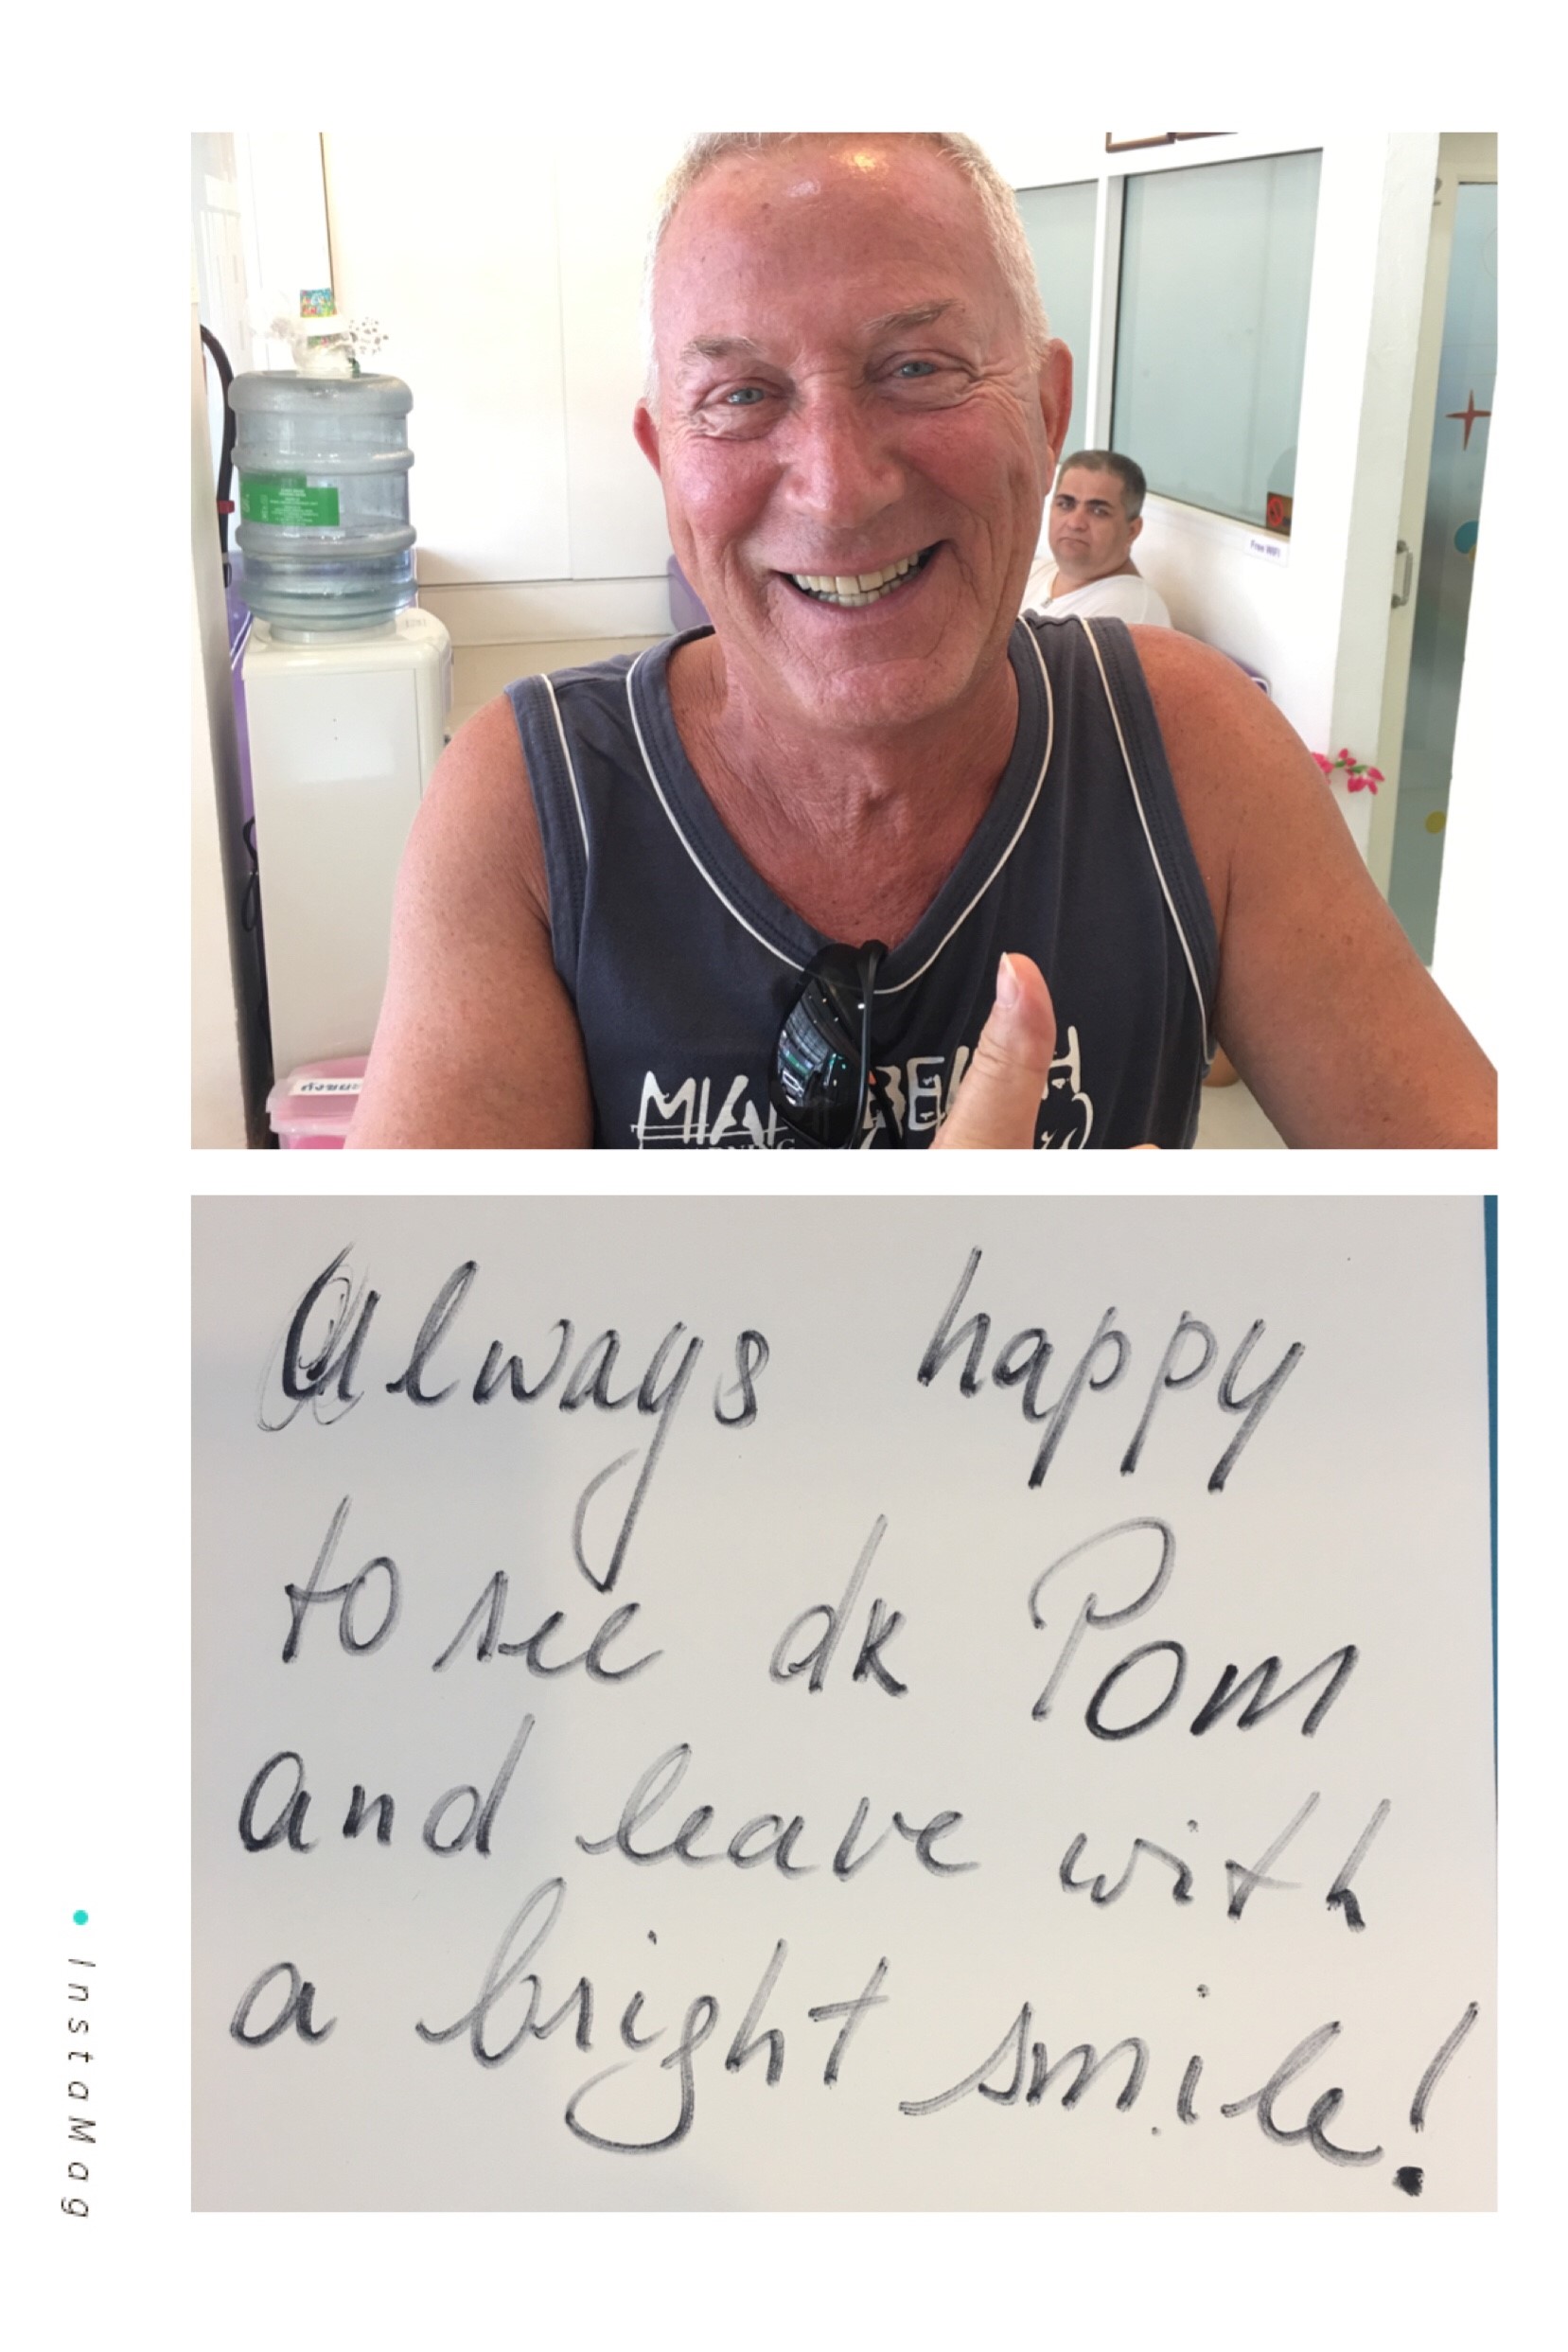 Free WiFi
MIA BEACH
Always happy
to see dr Pom
and leave with
a bright smile!
InstaMag